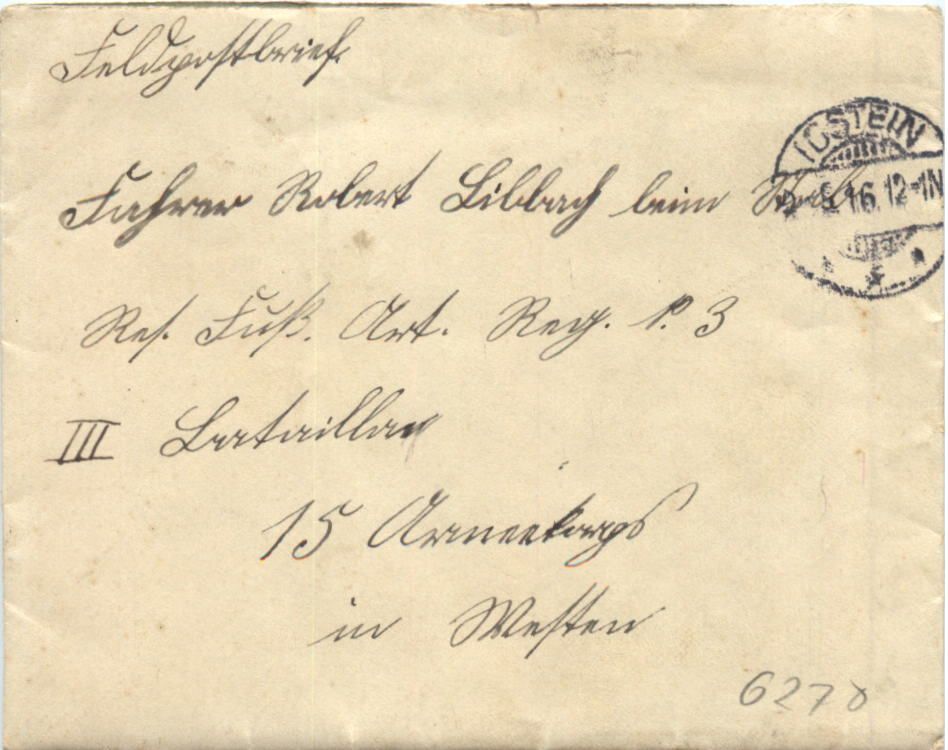 Feldpostbrief.
Fahrer Robert Bibbach beim Stab
Res. Fuß. Art. Reg. N. 3
III Bataillon
15 Armeekorps
in Westen
6278
IDSTEIN
16. 12-1N